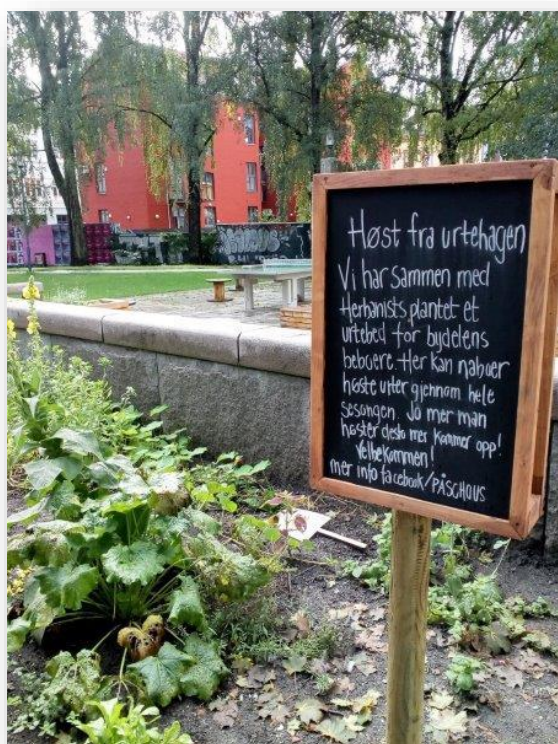 Høst fra urtehagen
Vi har sammen med
Herbanists plantet et
urtebed for bydelens
beboere. Her kan naboer
høste urter gjennom hele
sesongen. Jo mer man
høster desto mer kommer opp!
Velbekommen!
mer info facebook/PÅSCHOUS